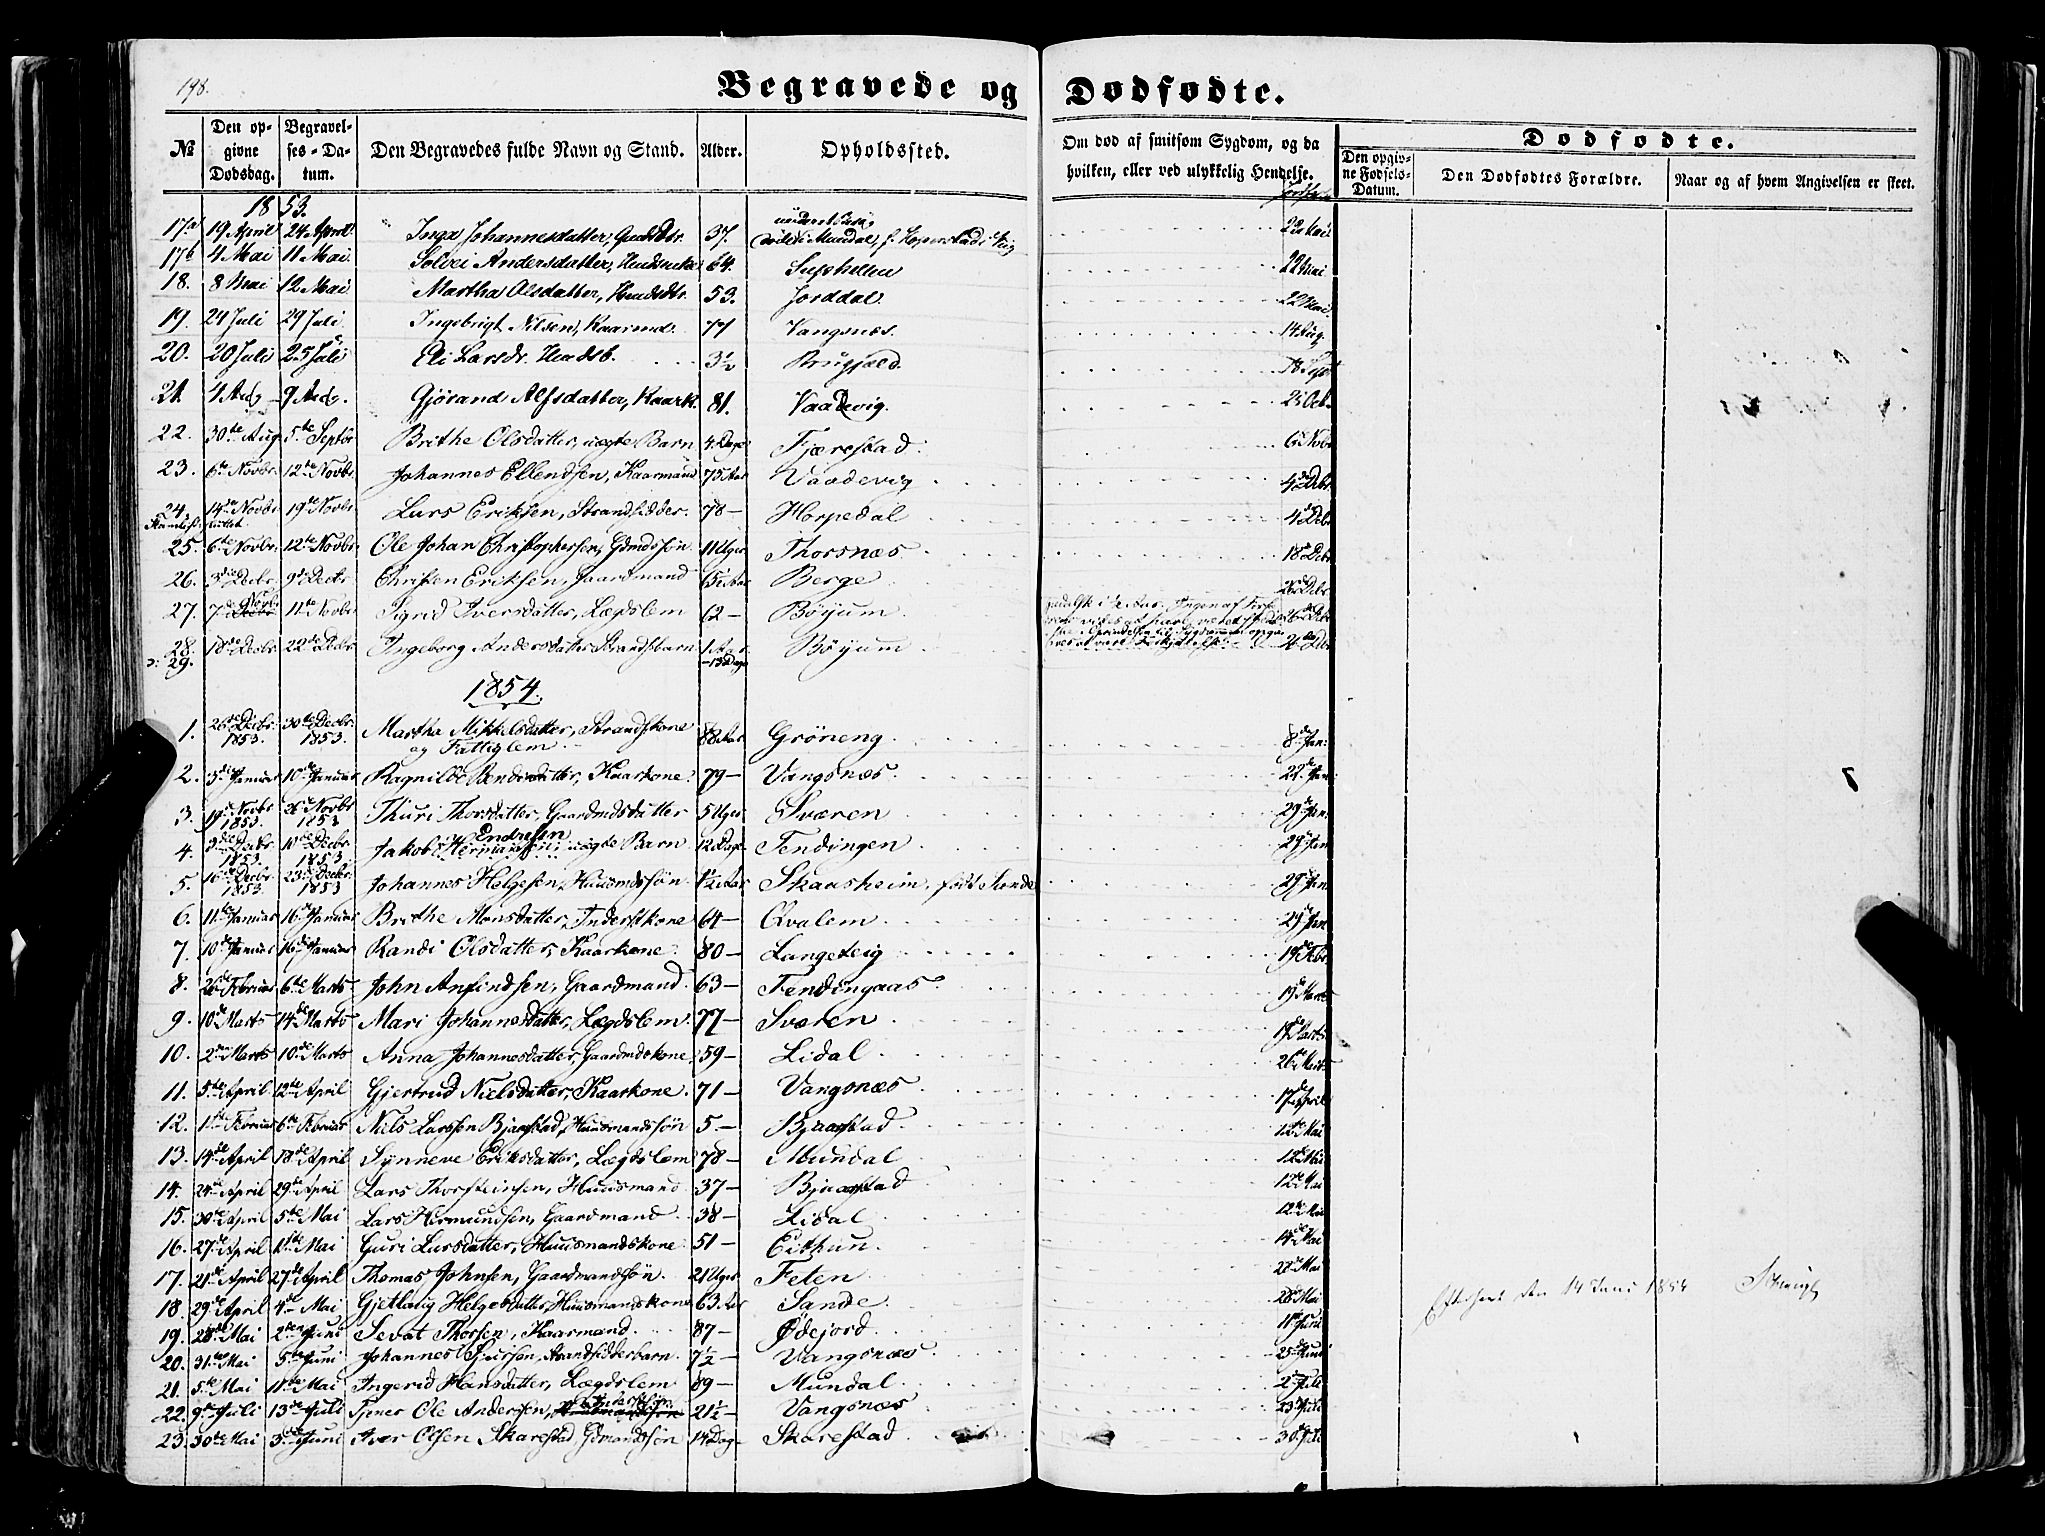 198.
Begravede og Dødfødte.
№ Den op-givne Dødsdag. Begravel-ses-Da-tum. Den Begravedes fulde Navn og Stand. Alder. Opholdssted. Om død af smitsom Sygdom, og da hvilken, eller ved ulykkelig Hendelse. Dødfødte. Den opgiv-ne Fødsels-Datum. Den Dødfødtes Forældre. Naar og af hvem Angivelsen er skeet.
1853.
17a 19 April 24 April Inga Johannesdatter, 37. Mundal, f. Hopperstad i Vig 22 Mai
17b 4 Mai 11 Mai Solvei Andersdatter, 64. 22 Mai
18. 8 Mai 12 Mai Martha Olsdatter, 53. Jorddal 22 Mai
19. 24 Juli 29 Juli Ingebrigt Nilsen, Kaarmd. 77 Vangsnæs. 14 Aug.
20. 20 Juli 25 Juli Eli Larsdr. Husdb. 3½ 18 Sept
21. 4 9 Gjörand Alfsdatter, Kaark. 81. Vaadevig. 2 Oct.
22. 30te Aug 5te Septbr Brithe Olsdatter, uægte Barn 4 Dage Fjærestad. 6 Novbr
23. 6te Novbr. 12te Novbr. Johannes Ellendsen, Kaarmand 75 Aar Vaadevig 4de Debr
24. 14de Novbr 19de Novbr Lars Eriksen, Strandsidder. 78 — Horpedal 4de Debr
25. 6te Novbr. 12te Novbr. Ole Johan Christophersen, Gdmdssøn 11 Uger Thorsnæs 18de Debr
26. 3die Decbr. 9de Decbr. Christen Eriksen, Gaardmand Berge 26de Debr
27. 7de Novbr. 11te Novbr. Sigrid Iversdatter, Lægdslem 62 — Böyum 26de Debr
28. 18de Decbr. 22de Debr. Ingeborg Andersdatter Strandsbarn 1 Aar – 13 Dage Böyum 26de Debr
29.
1854.
1. 26de Decbr. 1853. 30te Decbr. 1853. Martha Mikkelsdatter, Strandskone og Fattiglem. 88 Aar Gröneng 8de Jan:
2. 5te Januar 10de Januar Ragnilde datter, Kaarkone. 79 — Vangsnæs. 22de Jan:
3. 19de Novbr 1853. 26de Novbr 1853 Thuri Thorsdatter, Gaardmdsdatter 5 Uger Sværen 29de Jan.
4. 3die Debr. 1853. 10de Decbr. 1853. Jakob Hermansen Endresen, uægte Barn 12 Dage Tendingen 29de Jan
5. 16de Decbr. 1853. 23de Decbr. 1853 Johannes Helgesen, Huusmdssøn ½ Aar Skaasheim, født 29de Jan
6. 11te Januar 16de Januar Brithe Monsdatter, Inderstkone 64 — Qvalem 29de Jan
7. 10de Januar 16de Januar Randi Olsdatter, Kaarkone. 80 — Langeteig 19de Febr.
8. 26de Februar 6te Marts John Anfindsen, Gaardmand. 63 — Tendingaas 19de Marts
9. 10de Marts 14de Marts Mari Johannesdatter, Lægdslem. 77 — Sværen 19de Marts
10. 2den Marts 10de Marts Anna Johannesdatter, Gaardmdskone. 59 — Lidal 26de Marts
11. 5te April 12te April Gjertrud Nielsdatter, Kaarkone. 71 — Vangsnæs 17de April
12. 1ste Februar 6te Februar Niels Larssen Bjaastad, Huusmandssøn 5 — Bjaastad. 12te Mai
13. 14de April 18de April Synneve Eriksdatter, Lægdslem 78 — Mundal 12te Mai
14. 24de April 29de April Lars Thorsteinsen, Huusmand 37 — Bjaastad 12te Mai
15. 30te April 5te Mai Lars Hermundsen, Gaardmand 38 — Lidal 12te Mai
16. 27de April 1ste Mai Guri Larsdatter, Huusmandskone 51 — Eithun. 14de Mai
17. 21de April 27de April Thomas Johnsen, Gaardmandssøn. 21 Uger Feten 28de Mai
18. 29de April 4de Mai Gjetlaug Helgesdatter, Huusmandskone 63 Aar Sande. 28de Mai
19. 28de Mai 2den Juni Sevat Thorsen, Kaarmand. 87 — Ödejord 11te Juni
20. 31te Mai 5te Juni Johannes Sjursen, Strandsidderbarn. 7½ — Vangsnæs 25de Juni
21. 5te Mai 11te Mai Ingerid Hansdatter, Lægdslem 89 — Mundal 2 Juli
22. 9de Juli 13de Juli Tjener Ole Andersen, 21½ — Vangsnæs 23 Juli
23. 30te Mai 3die Juni Iver Olsen Skarestad, Gdmandssøn 14 Dag Skarestad 30 Juli
Efterseet den 14 Juni 1854